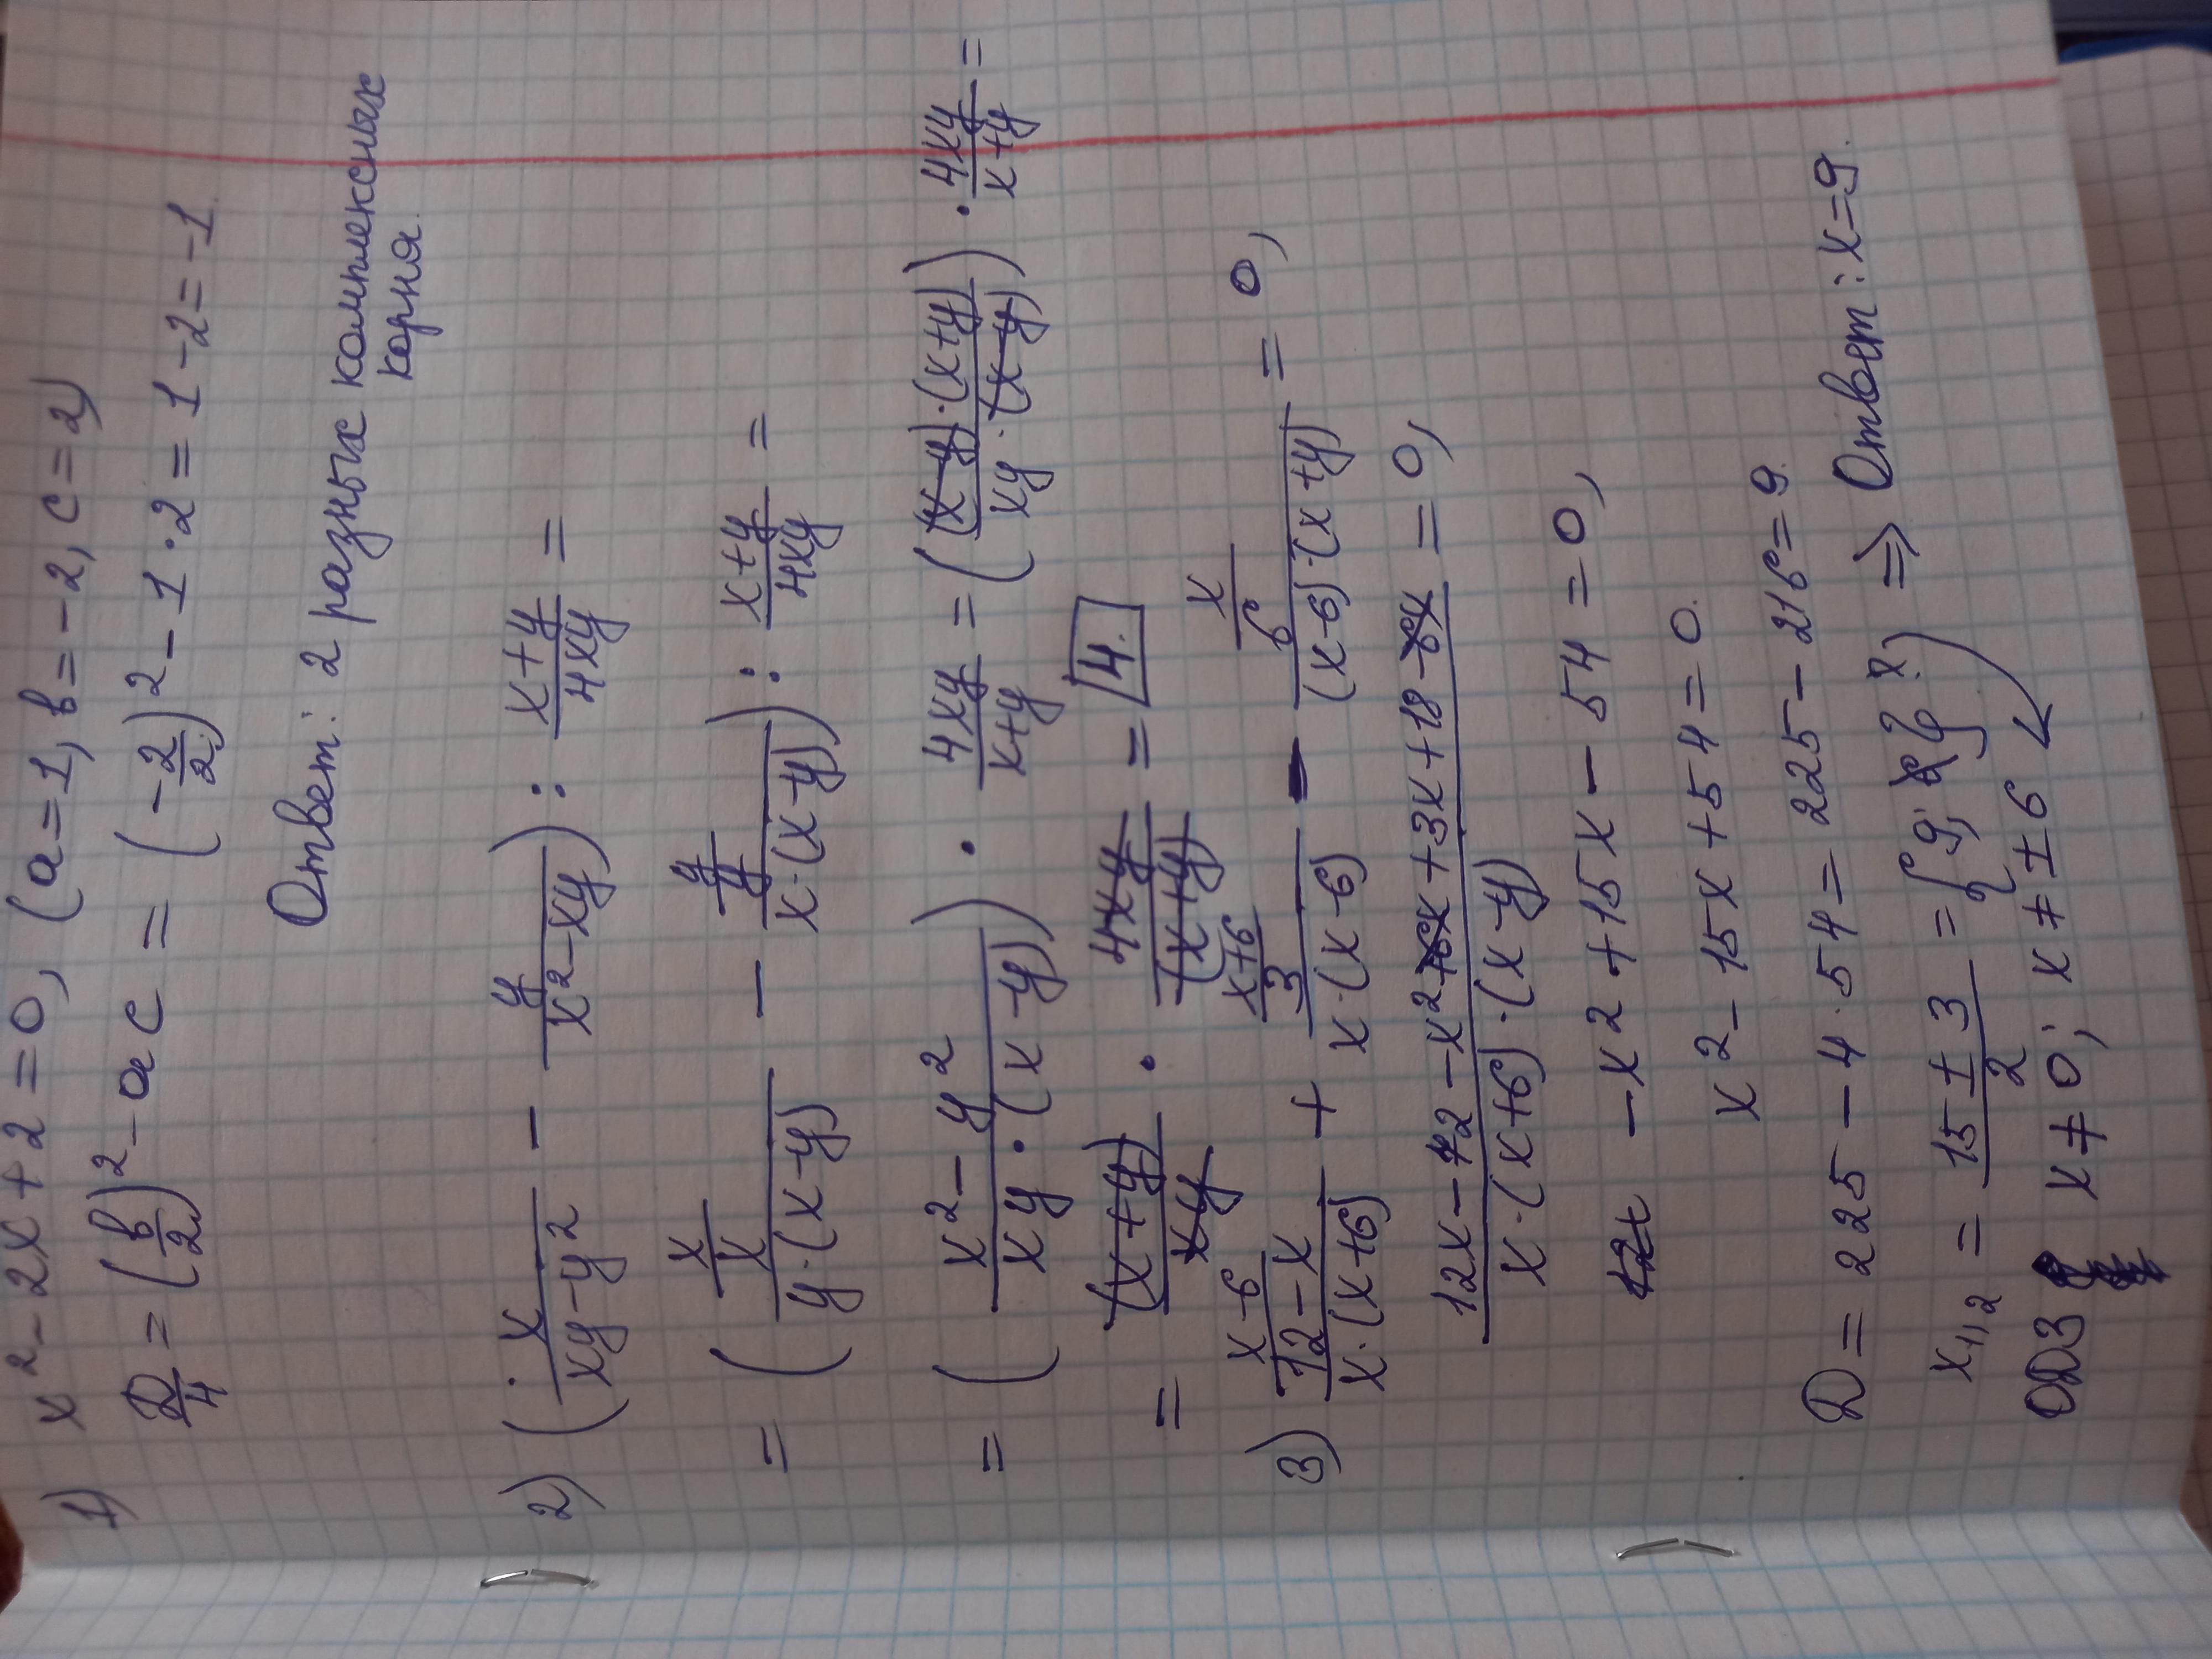 1) x² - 2x + 2 = 0, (a = 1, b = -2, c = 2)
D/4 = (b/2)² - ac = (-2/2)² - 1 · 2 = 1 - 2 = -1.
Ответ: 2 разных комплексных
корня.
2) (x/(xy - y²) - y/(x² - xy)) : (x + y)/(4xy) =
= (x\x/(y·(x - y)) - y\y/(x·(x - y))) : (x + y)/(4xy) =
= ((x² - y²)/(xy·(x - y))) · 4xy/(x + y) = ((x - y)·(x + y)/(xy·(x - y))) · 4xy/(x + y) =
= (x + y)/(xy) · 4xy/(x + y) = 4.
3) x-6\12 - x/(x·(x + 6)) + x+6\3/(x·(x - 6)) - x\6/((x - 6)·(x + y)) = 0,
(12x - 72 - x² + 6x + 3x + 18 - 6x)/(x·(x + 6)·(x - y)) = 0,
-x² + 15x - 54 = 0,
x² - 15x + 54 = 0.
D = 225 - 4 · 54 = 225 - 216 = 9.
x₁,₂ = (15 ± 3)/2 = {9; 6} ⇒ Ответ: x = 9.
ОДЗ x ≠ 0; x ≠ ± 6